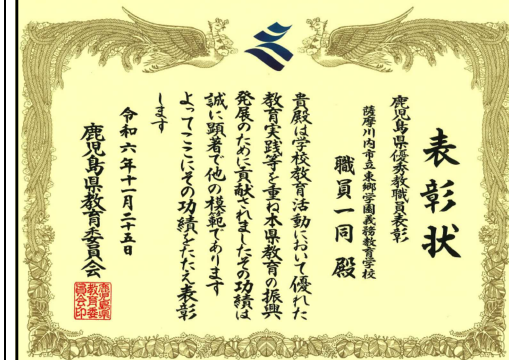 表彰状
鹿児島県優秀教職員表彰
薩摩川内市立東郷学園義務教育学校
職員一同 殿
貴殿は学校教育活動において優れた
教育実践等を重ね本県教育の振興
発展のために貢献されましたその功績は
誠に顕著で他の模範であります
よってここにその功績をたたえ表彰
します
令和六年十一月二十五日
鹿児島県教育委員会
鹿児島県
教育委
員会印